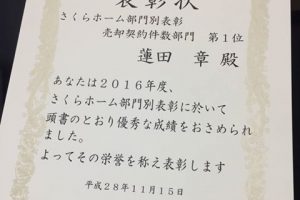 表彰状
さくらホーム部門別表彰
売却契約件数部門 第1位
蓮田 章 殿
あなたは2016年度、
さくらホーム部門別表彰に於いて
頭書のとおり優秀な成績をおさめられ
ました。
よってその栄誉を称え表彰します
平成28年11月15日